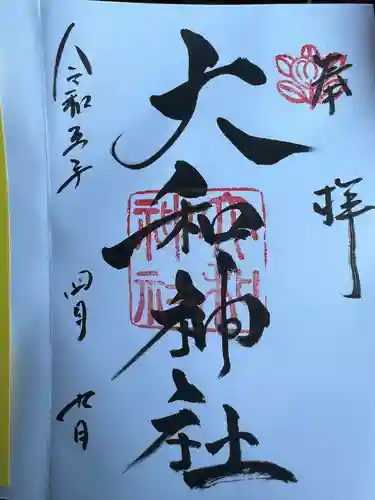 奉拝
大和神社
大和
神社
令和五年 四月 九日